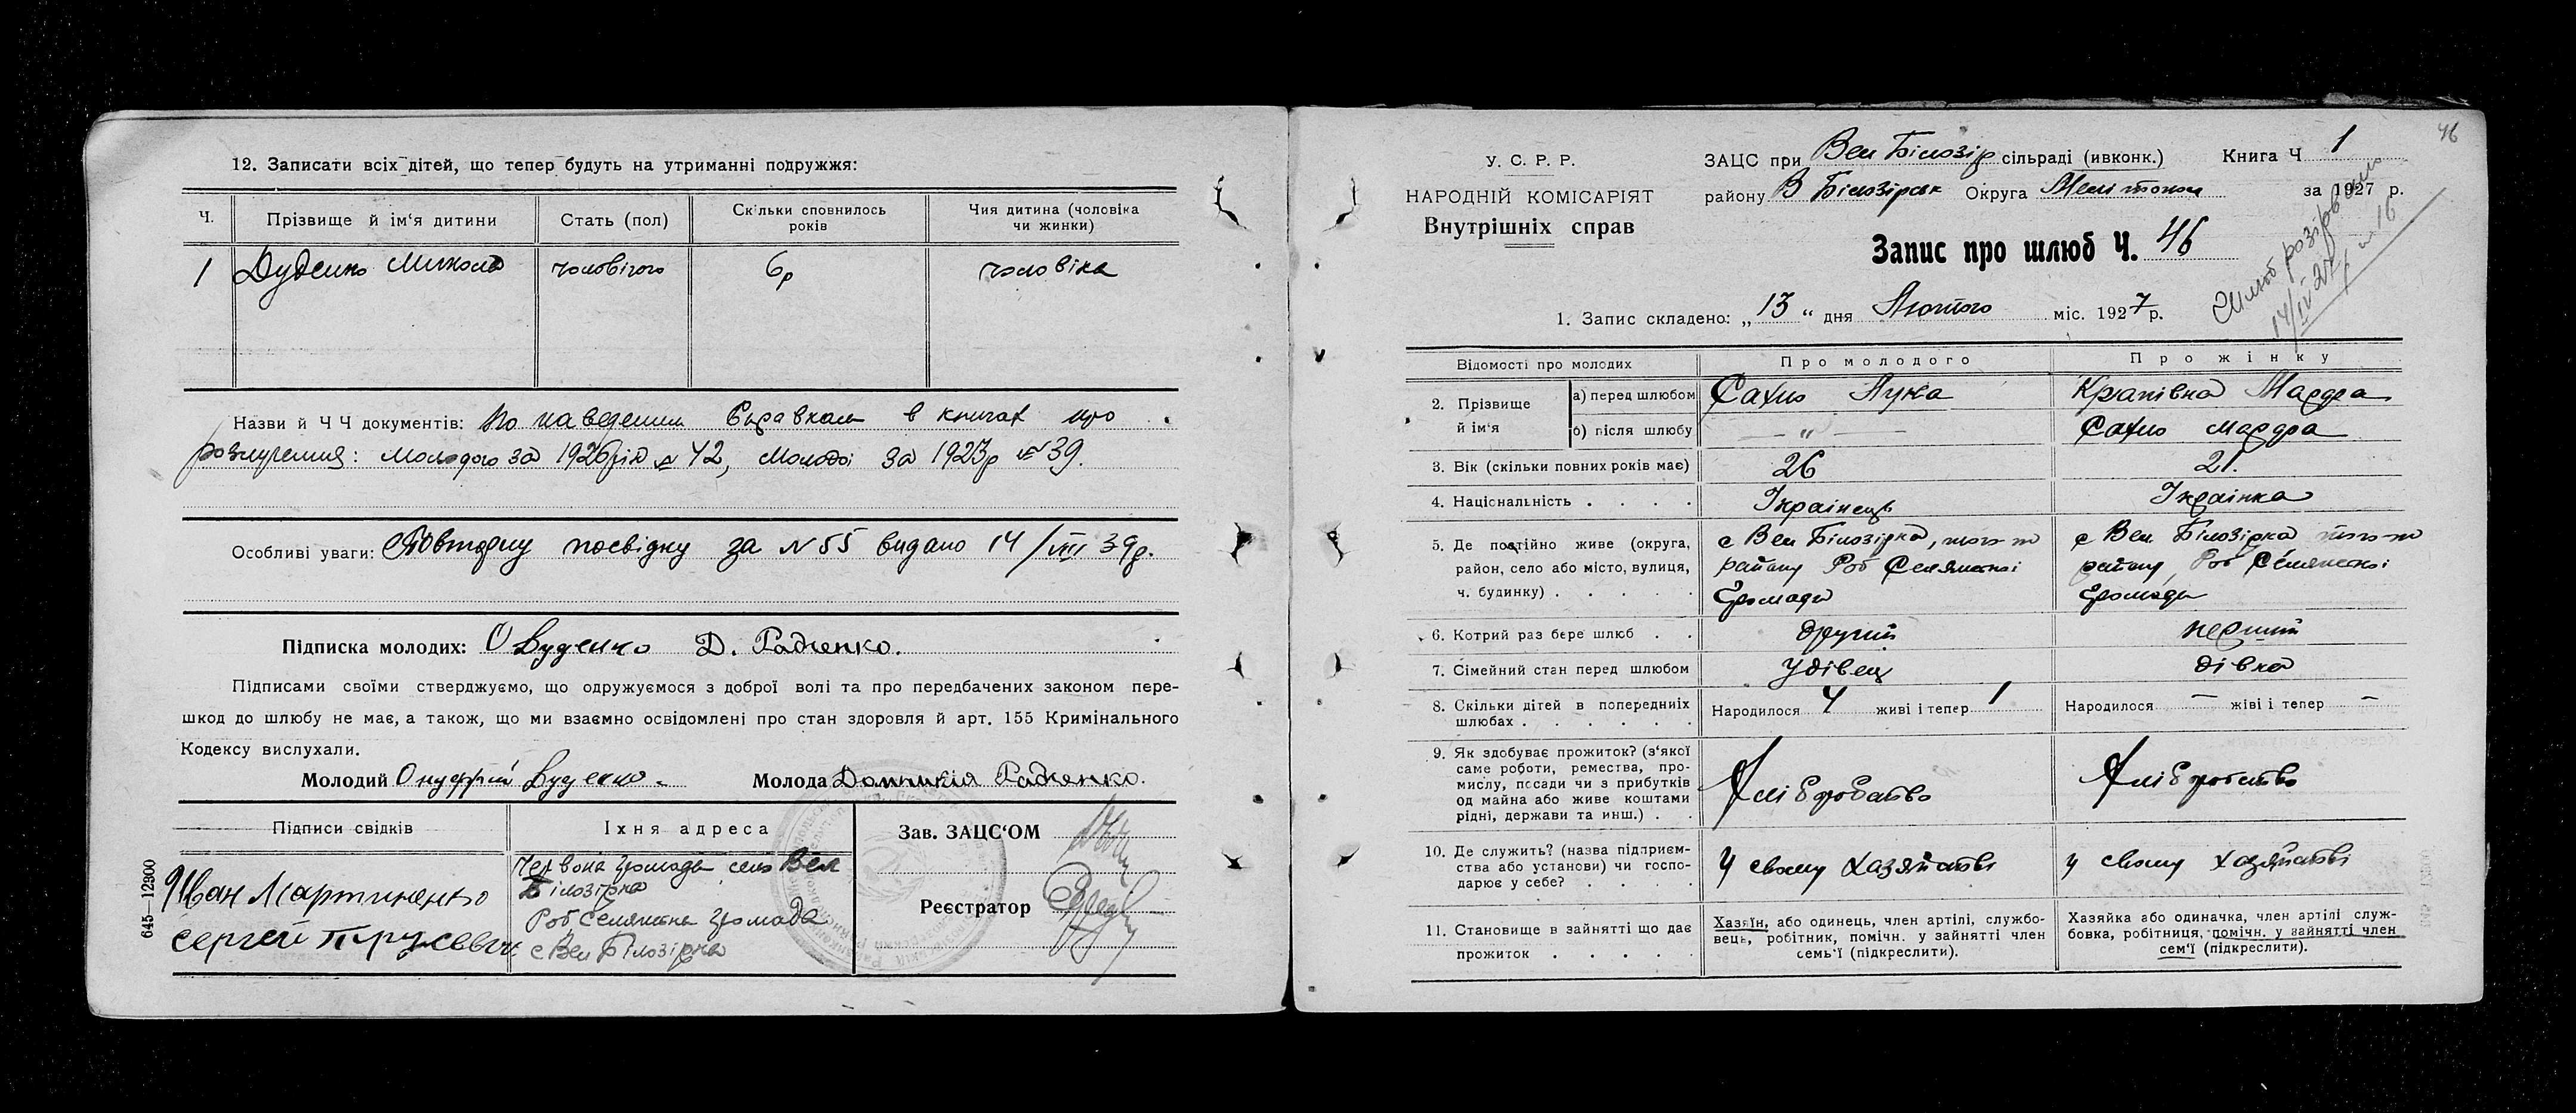 12. Записати всіх дітей, що тепер будуть на утриманні подружжя:
Ч. Прізвище й ім'я дитини Стать (пол) Скільки сповнилось років Чия дитина (чоловіка чи жинки)
1 Дуденко Микола чоловічого 6р чоловіка
Назви й Ч Ч документів: По наведеним справкам в книгах про
розлучення: молодого за 1926рік № 42, молодої за 1923р № 39.
Особливі уваги: Повторну посвідку за N 55 видано 14/VIII 39р.
Підписка молодих: О Дуденко Д. Радченко.
Підписами своїми стверджуємо, що одружуємося з доброї волі та про передбачених законом пере-
шкод до шлюбу не має, а також, що ми взаємно освідомлені про стан здоровля й арт. 155 Кримінального
Кодексу вислухали.
Молодий Онуфрий Дуденко Молода Домникія Радченко.
Підписи свідків Їхня адреса
Иван Мартиненко
Сергей
Червона громада село Вел
Білозірка
Роб Селянська громада
с Вел Білозірка
Зав. ЗАЦС'ОМ
Реєстратор
645—12900
46
У. С. Р. Р.
НАРОДНІЙ КОМІСАРІЯТ
Внутрішніх справ
ЗАЦС при Вел Білозір сільраді (ивконк.) Книга Ч 1
району В Білозірськ Округа Мелітопол за 1927 р.
Запис про шлюб Ч. 46
Шлюб розірвано
14/IV 27 № 16
1. Запис складено: „13" дня Лютого міс. 1927 р.
Відомості про молодих Про молодого Про жінку
2. Прізвище й ім'я а) перед шлюбом Сахно Лука Крапівна Марфа
б) після шлюбу — „ — Сахно Марфа
3. Вік (скільки повних років має) 26 21.
4. Національність Українець Українка
5. Де постійно живе (округа, район, село або місто, вулиця, ч. будинку)
с Вел Білозірка, того-ж
району Роб Селянської
Громади
с Вел Білозірка того-ж
району, Роб Селянської
Громади
6. Котрий раз бере шлюб другий перший
7. Сімейний стан перед шлюбом удівец дівка
8. Скільки дітей в попередніх шлюбах Народилося 4 живі і тепер 1 Народилося — жіві і тепер —
9. Як здобуває прожиток? (з'якої саме роботи, ремества, про-
мислу, посади чи з прибутків од майна або живе коштами
рідні, держави та инш.)
Хліборобство Хліборобство
10. Де служить? (назва підприєм-
ства або установи) чи госпо-
дарює у себе?
У своему хазяйстві у своему хазяйстві
11. Становище в зайнятті що дає прожиток
Хазяїн, або одинець, член артілі, службо-
вець, робітник, помічн. у зайнятті член
семь'ї (підкреслити).
Хазяйка або одиначка, член артілі служ-
бовка, робітниця, помічн. у зайнятті член
сем'ї (підкреслити).